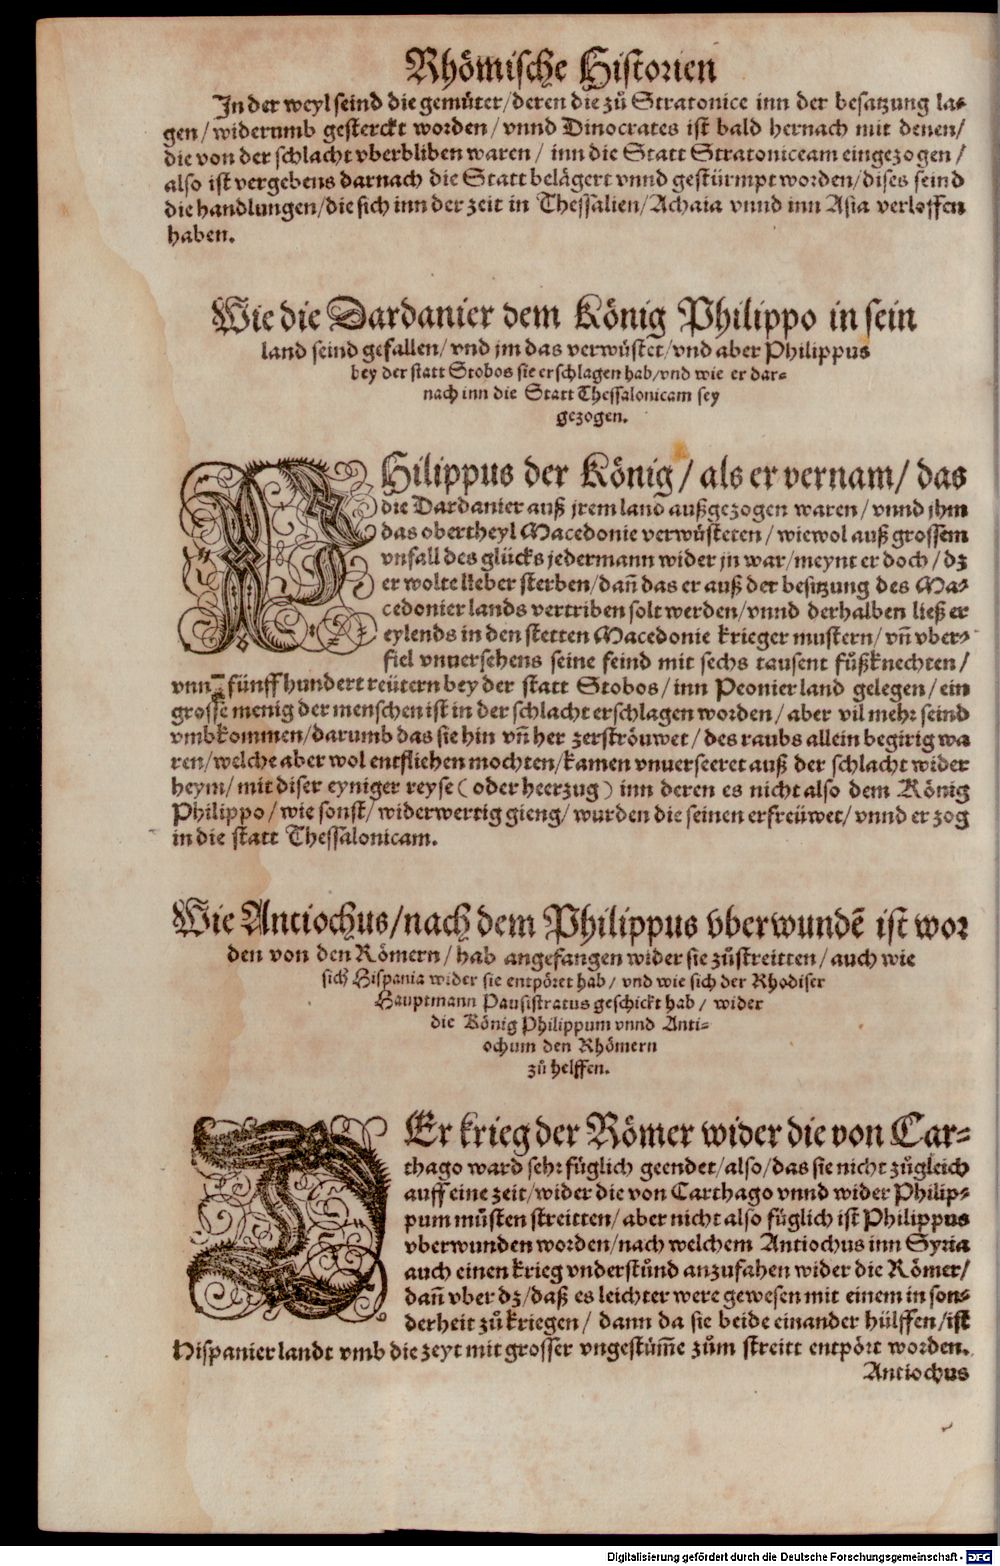 Rhömische Historien
In der weyl seind die gemüter/deren die zů Stratonice inn der besatzung la-
gen/widerumb gesterckt worden/vnnd Dinocrates ist bald hernach mit denen/
die von der schlacht vberbliben waren/ inn die Statt Stratoniceam eingezogen/
also ist vergebens darnach die Statt belägert vnnd gestürmpt worden/dises seind
die handlungen/die sich inn der zeit in Thessalien/Achaia vnnd inn Asia verloffen
haben.
Wie die Dardanier dem König Philippo in sein
land seind gefallen/vnd jm das verwüstet/vnd aber Philippus
bey der statt Stobos sie erschlagen hab/vnd wie er dar-
nach inn die Statt Thessalonicam sey
gezogen.
PHilippus der König/als er vernam/das
die Dardanier auß jrem land außgezogen waren/vnnd jhm
das obertheyl Macedonie verwüsteten/wiewol auß grossem
vnfall des glücks jedermann wider jn war/meynt er doch/dz
er wolte lieber sterben/dañ das er auß der besitzung des Ma-
cedonier lands vertriben solt werden/vnnd derhalben ließ er
eylends in den stetten Macedonie krieger mustern/vñ vber-
fiel vnuersehens seine feind mit sechs tausent fůßknechten/
vnn fünffhundert reütern bey der statt Stobos/inn Peonier land gelegen/ein
grosse menig der menschen ist in der schlacht erschlagen worden/aber vil mehr seind
vmbkommen/darumb das sie hin vñ her zerströuwet/des raubs allein begirig wa
ren/welche aber wol entfliehen mochten/kamen vnuerseeret auß der schlacht wider
heym/mit diser eyniger reyse (oder heerzug) inn deren es nicht also dem König
Philippo/wie sonst/widerwertig gieng/wurden die seinen erfreüwet/vnnd er zog
in die statt Thessalonicam.
Wie Antiochus/nach dem Philippus vberwundē ist wor
den von den Römern/hab angefangen wider sie zůstreitten/auch wie
sich Hispania wider sie entpöret hab/vnd wie sich der Rhodiser
Hauptmann Pausistratus geschickt hab/wider
die König Philippum vnnd Anti-
ochum den Rhömern
zů helffen.
DEr krieg der Römer wider die von Car-
thago ward sehr füglich geendet/also/das sie nicht zůgleich
auff eine zeit/wider die von Carthago vnnd wider Philip-
pum můsten streitten/aber nicht also füglich ist Philippus
vberwunden worden/nach welchem Antiochus inn Syria
auch einen krieg vnderstůnd anzufahen wider die Römer/
dañ vber dz/daß es leichter were gewesen mit einem in son-
derheit zů kriegen/dann da sie beide einander hülffen/ist
Hispanier landt vmb die zeyt mit grosser vngestüm̃e zům streitt entpört worden.
Antiochus
Digitalisierung gefördert durch die Deutsche Forschungsgemeinschaft - DFG